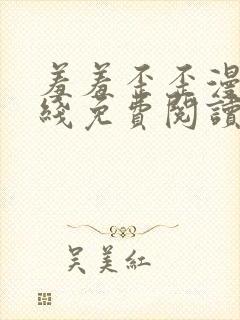 羞羞歪歪漫
綫免費閱讀
吴美紅